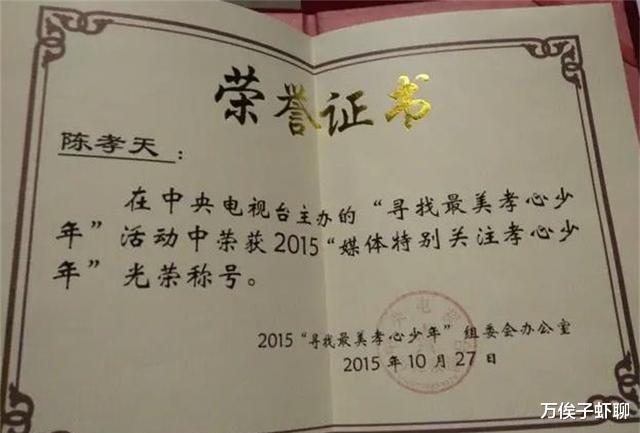 荣誉证书
陈孝天：
在中央电视台主办的“寻找最美孝心少
年”活动中荣获2015“媒体特别关注孝心少
年”光荣称号。
2015“寻找最美孝心少年”组委会办公室
2015年10月27日
万俟子虾聊